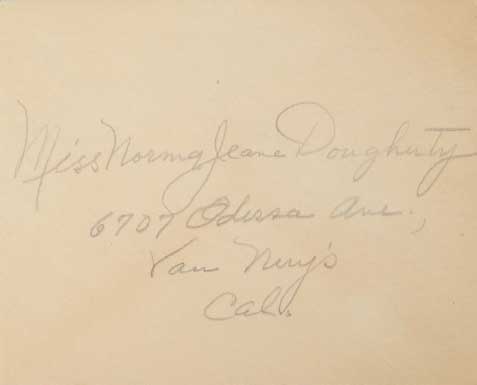 Miss Norma Jeane Dougherty
6707 Odessa Ave.,
Van Nuy's
Cal.